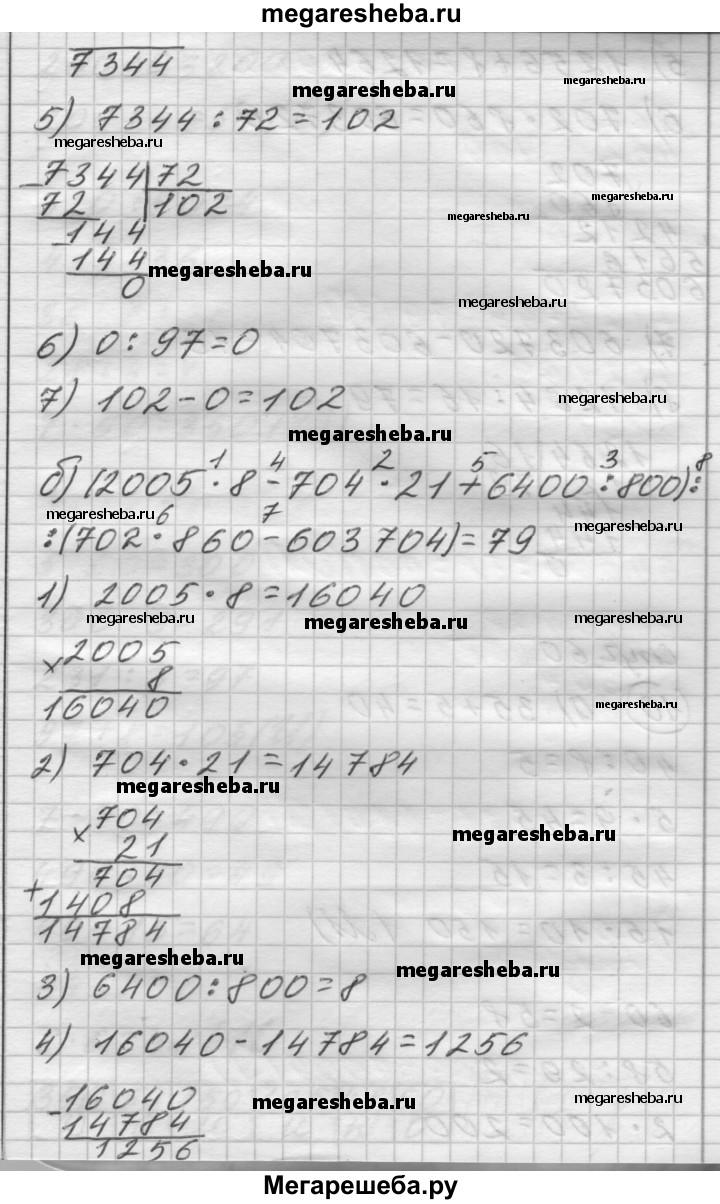 megaresheba.ru
7344
megaresheba.ru
megaresheba.ru
5) 7344 : 72 = 102
megaresheba.ru
7344 72
megaresheba.ru
72 102
megaresheba.ru
144
144 megaresheba.ru
0
megaresheba.ru
6) 0 : 97 = 0
7) 102 - 0 = 102
megaresheba.ru
megaresheba.ru
1 4 2 5 3 8
б) (2005 · 8 - 704 · 21 + 6400 : 800) :
megaresheba.ru 6 7
megaresheba.ru
: (702 · 860 - 603704) = 79
1) 2005 · 8 = 16040
megaresheba.ru megaresheba.ru megaresheba.ru
× 2005
8
16040
megaresheba.ru
2) 704 · 21 = 14784
megaresheba.ru
× 704
21
megaresheba.ru
704
+ 1408
14784
megaresheba.ru
megaresheba.ru
3) 6400 : 800 = 8
4) 16040 - 14784 = 1256
- 16040
megaresheba.ru megaresheba.ru
14784
1256
Мегарешеба.ру